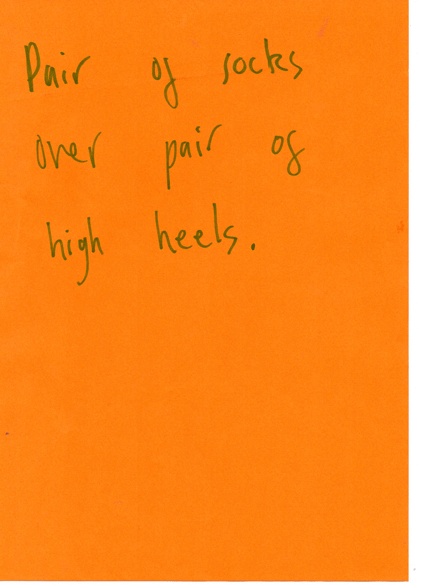 Pair of socks
over pair of
high heels.